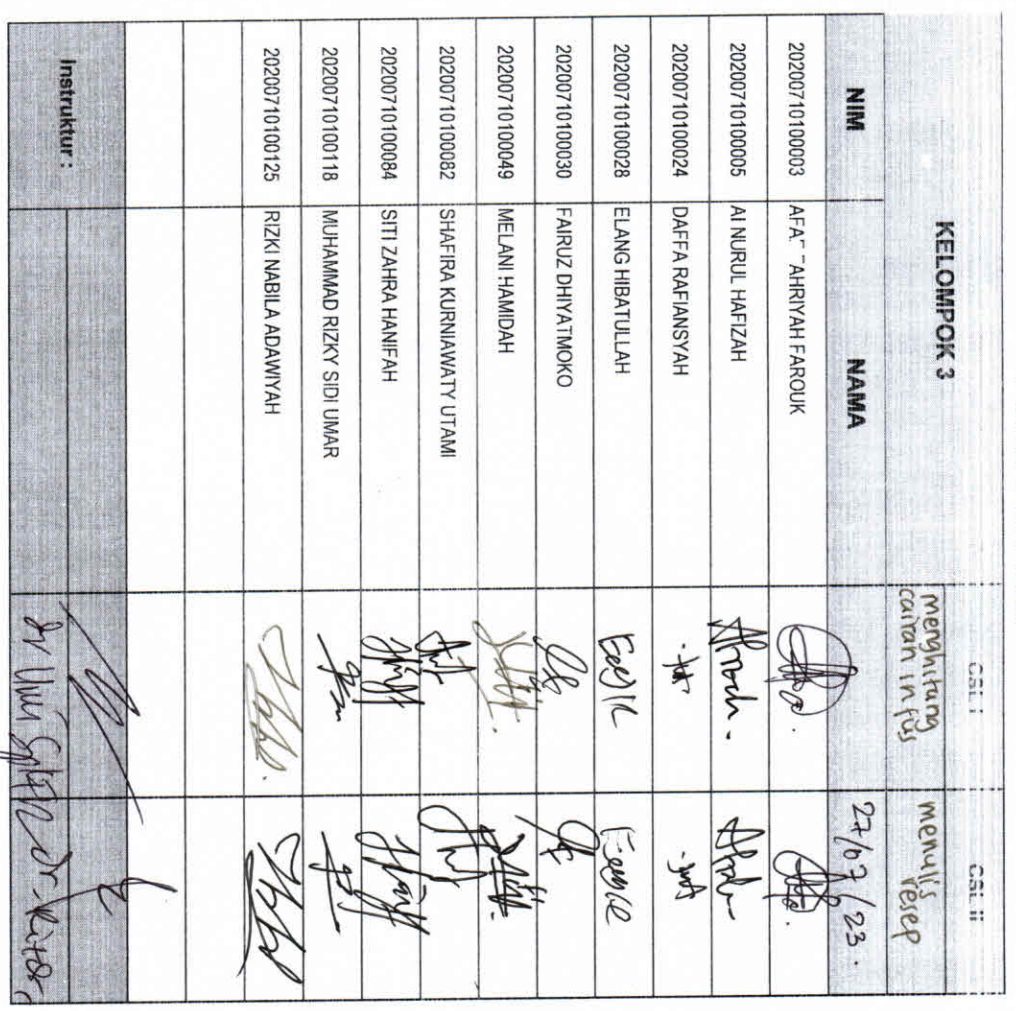 KELOMPOK 3
CSL I
CSL II
menghitung cairan infus
menulis resep
NIM
NAMA
27/07/23.
20200710100003 AHRIYAH FAROUK
20200710100005 AI NURUL HAFIZAH
20200710100024 DAFFA RAFIANSYAH
20200710100028 ELANG HIBATULLAH
20200710100030 FAIRUZ DHIYATMOKO
20200710100049 MELANI HAMIDAH
20200710100082 SHAFIRA KURNIAWATY UTAMI
20200710100084 SITI ZAHRA HANIFAH
20200710100118 MUHAMMAD RIZKY SIDI UMAR
20200710100125 RIZKI NABILA ADAWIYAH
Instruktur :
dr